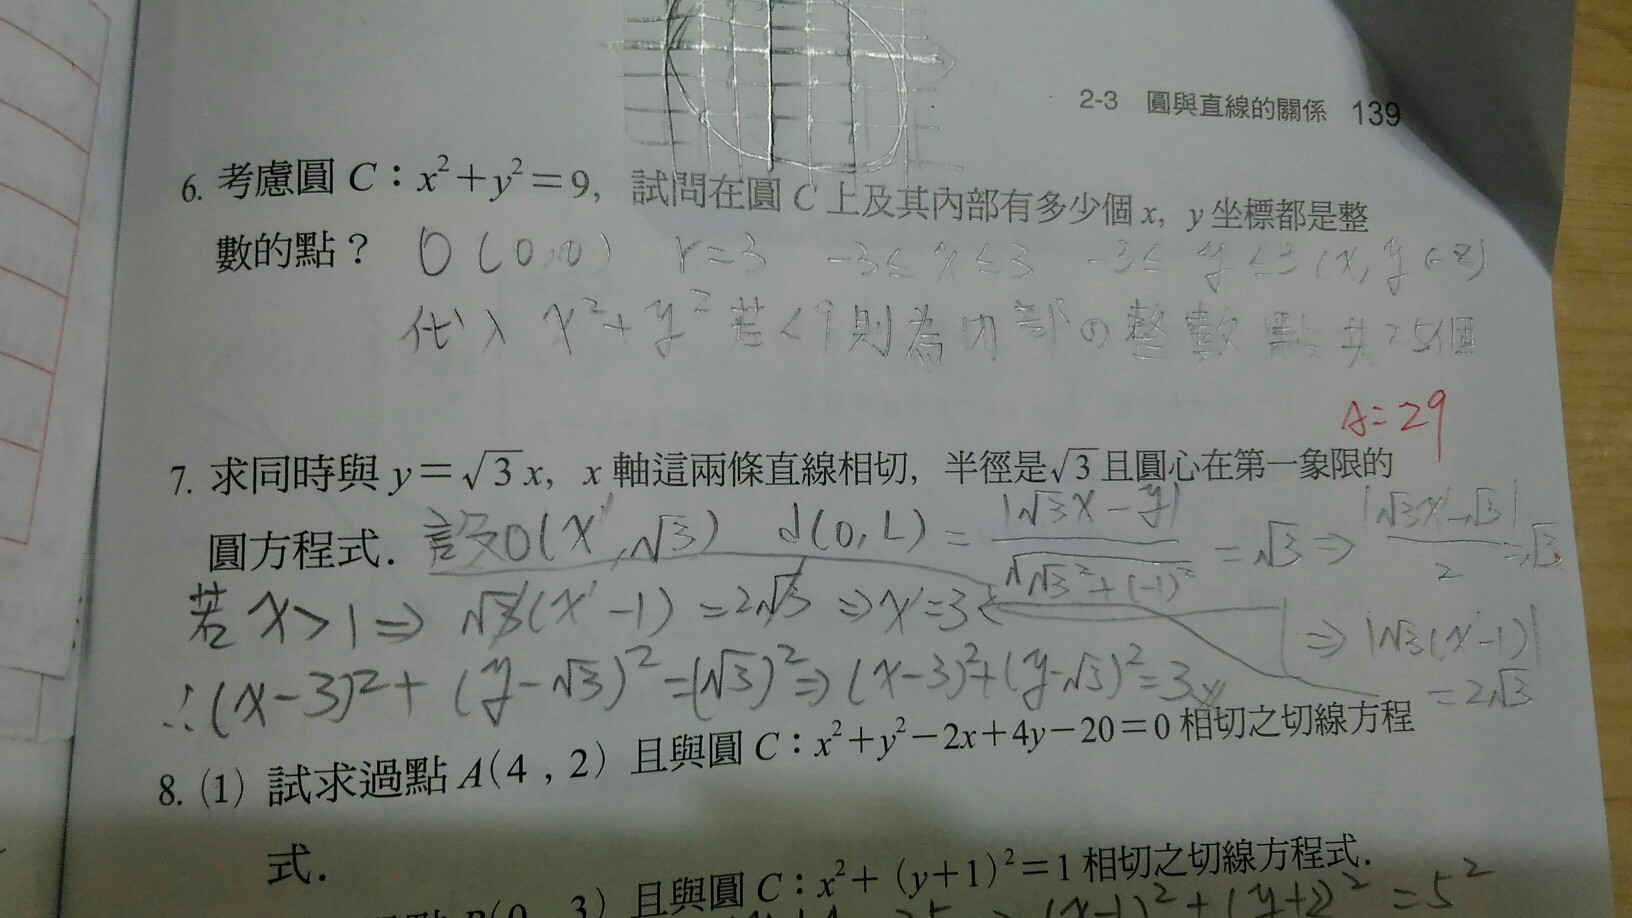 2-3 圓與直線的關係 139
6. 考慮圓 C：x²+y²=9，試問在圓 C 上及其內部有多少個 x，y 坐標都是整
數的點？ O(0,0) r=3 -3≤x≤3 -3≤y≤3 (x,y∈Z)
代入 x²+y² 若<9則為內部の整數點 共25個
A=29
7. 求同時與 y=√3x，x 軸這兩條直線相切，半徑是√3且圓心在第一象限的
圓方程式． 設O(x',√3) d(O,L) = |√3x-y| / √(√3²+(-1)²) = √3 ⇒ |√3x'-√3| / 2 = √3
若 x>1 ⇒ √3(x'-1) = 2√3 ⇒ x'=3 ⇒ |√3(x'-1)|
= 2√3
∴(x-3)²+(y-√3)²=(√3)² ⇒ (x-3)²+(y-√3)²=3
8. (1) 試求過點 A(4，2) 且與圓 C：x²+y²-2x+4y-20=0 相切之切線方程
式．
(0，3) 且與圓 C：x²+(y+1)²=1 相切之切線方程式．
(x-1)²+(y+2)²=5²